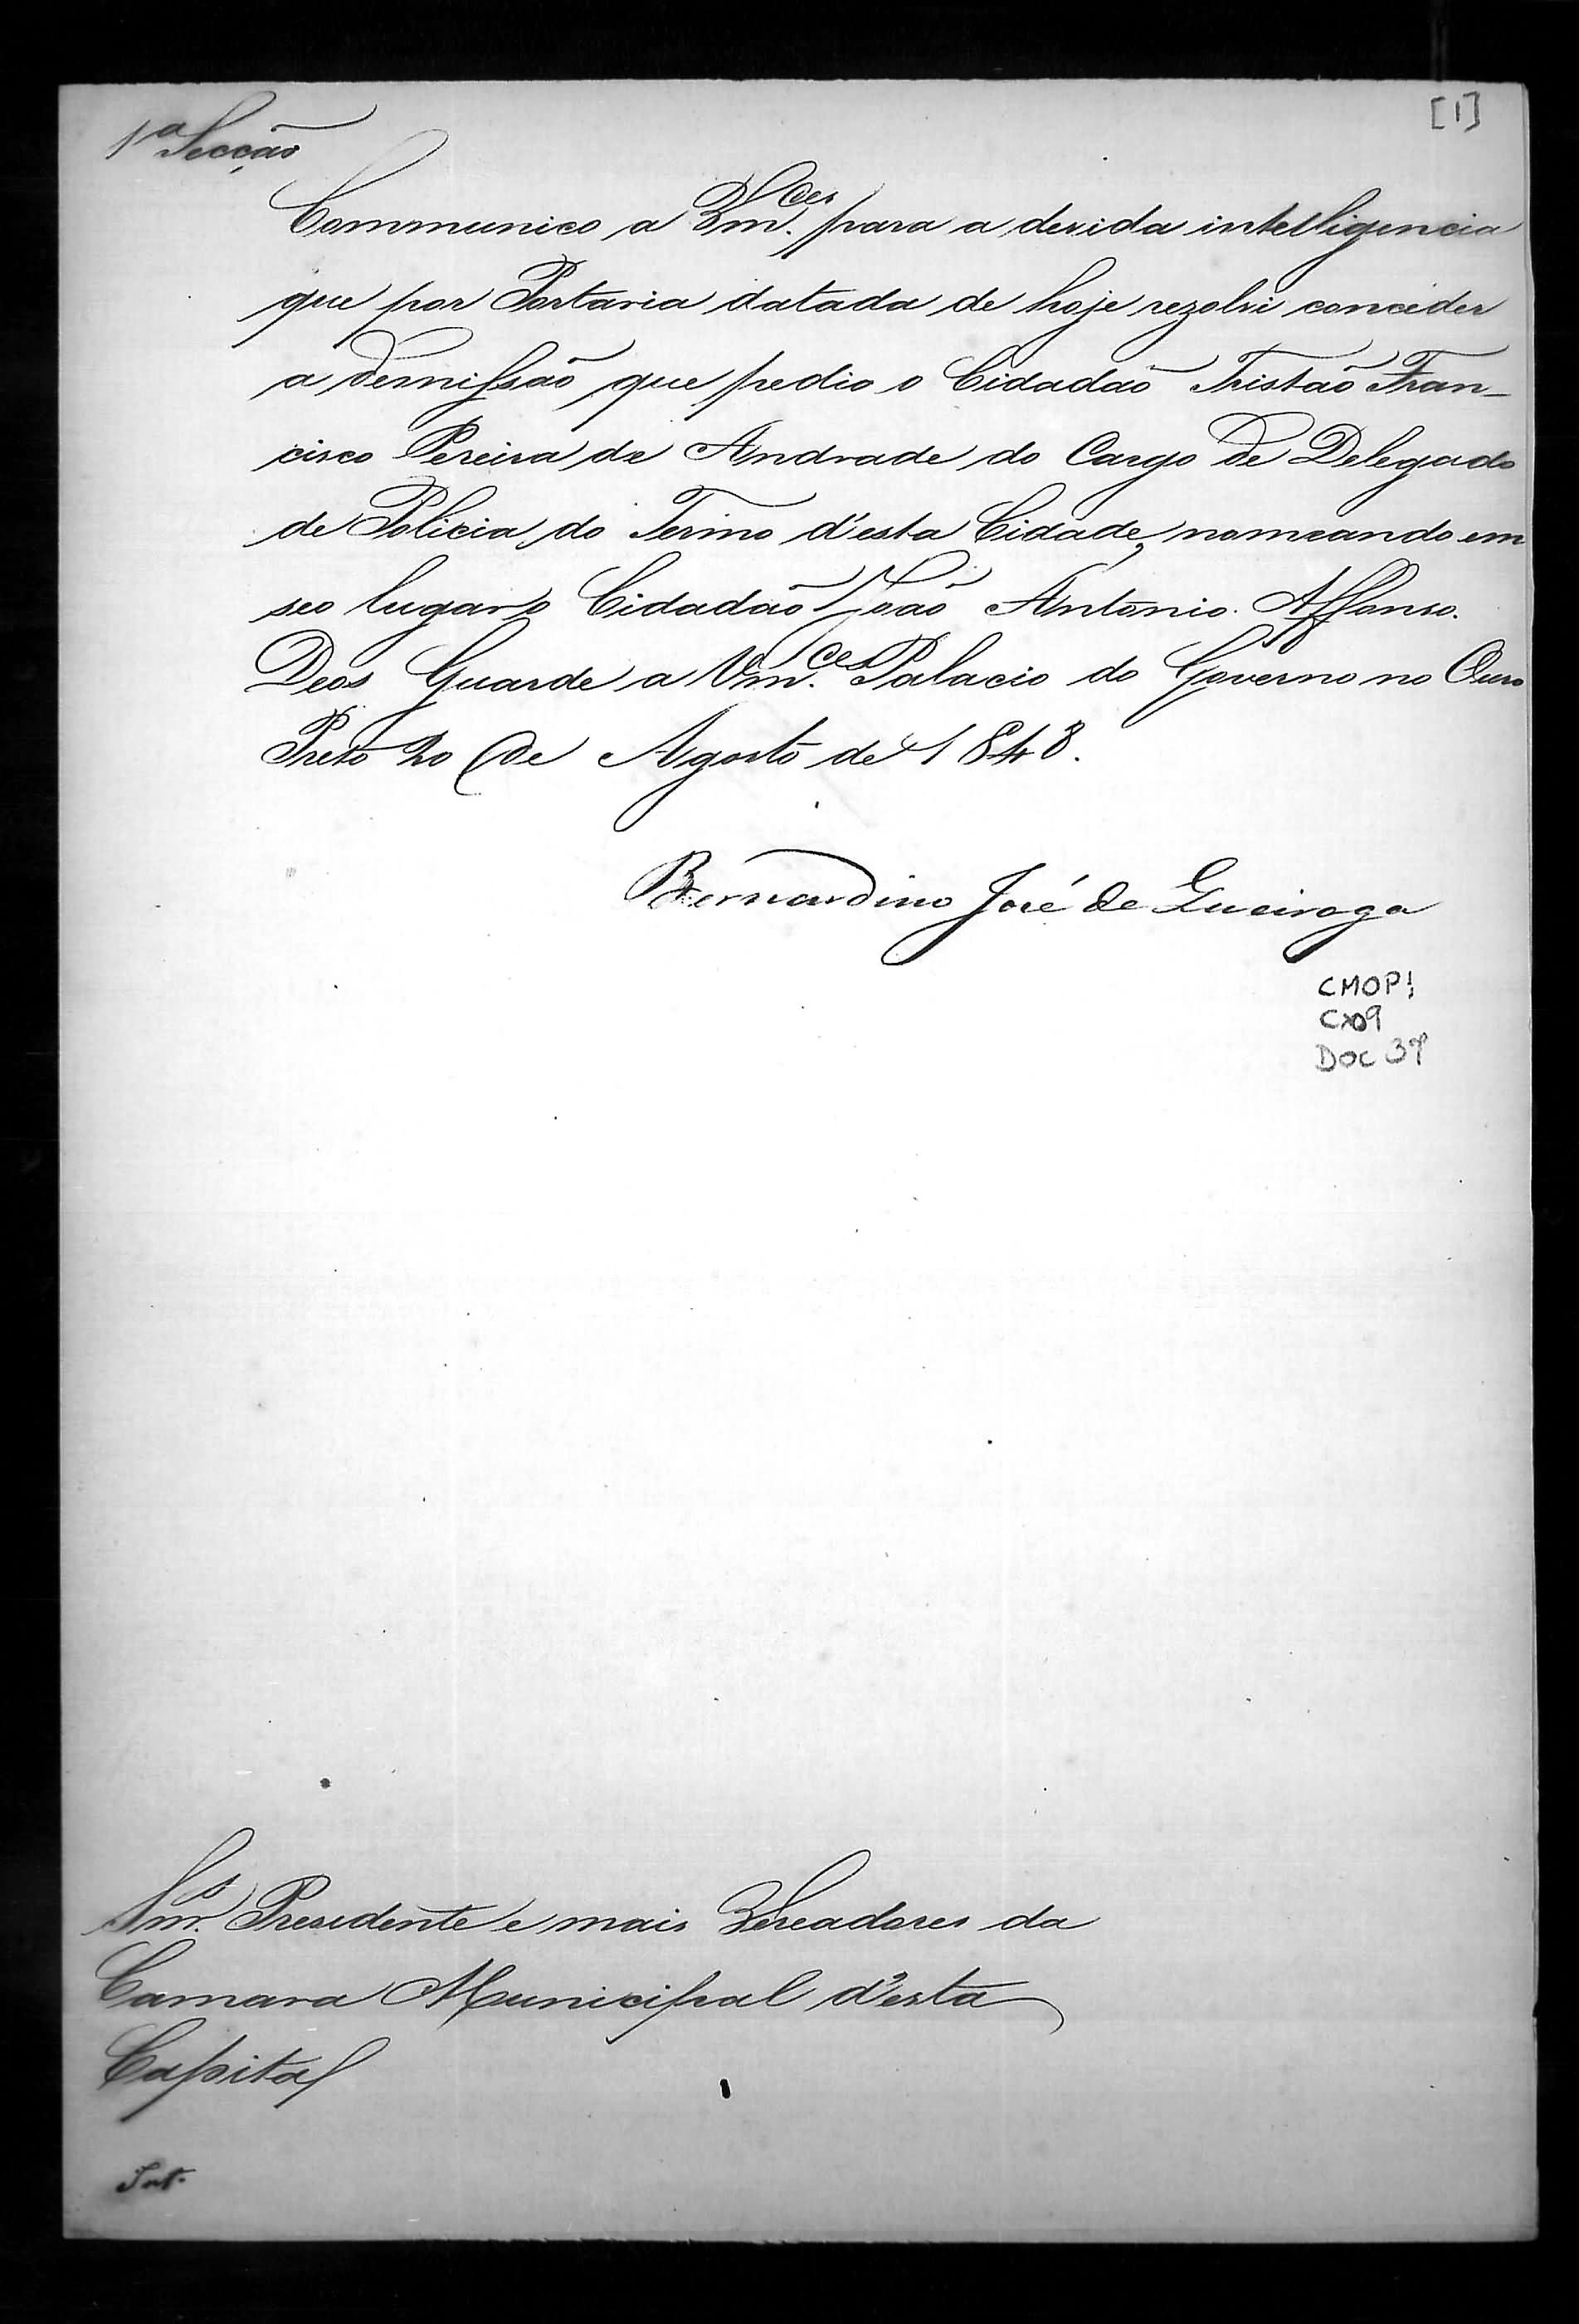 [1]
1ª Secção
Communico a Vm.ces para a devida intelligencia
que por Portaria datada de hoje rezolvi conceder
a demissão que pedio o Cidadão Tristão Fran-
cisco Pereira de Andrade do Cargo de Delegado
de Policia do Termo d'esta Cidade, nomeando em
seo lugar o Cidadão João Antonio Affonso.
Deos Guarde a Vm.ces Palacio do Governo no Ouro
Preto 20 de Agosto de 1848.
Bernardino José de Queiroga
CMOP
CX09
DOC
Snrs. Presidente e mais Vereadores da
Camara Municipal d'esta
Capital